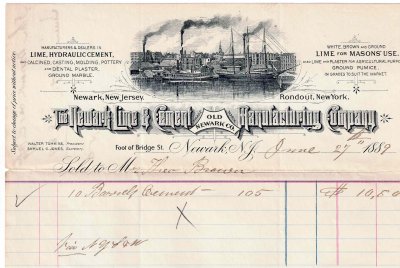 MANUFACTURERS & DEALERS IN
LIME, HYDRAULIC CEMENT,
AND CALCINED, CASTING, MOLDING, POTTERY
AND DENTAL PLASTER,
GROUND MARBLE.
WHITE, BROWN AND GROUND
LIME FOR MASONS' USE.
ALSO LIME AND PLASTER FOR AGRICULTURAL PURPOSES
GROUND PUMICE,
IN GRADES TO SUIT THE MARKET.
Newark, New Jersey.
Rondout, New York.
The Newark Lime & Cement
OLD
NEWARK CO.
Manufacturing Company
Subject to change of price without notice.
WALTER TOMKINS, President
SAMUEL C. JONES, Secretary.
Foot of Bridge St.
Newark, N.J. June 27th 1889
Sold to Mr Theo Brown
10 Barrels Cement 105 10,50